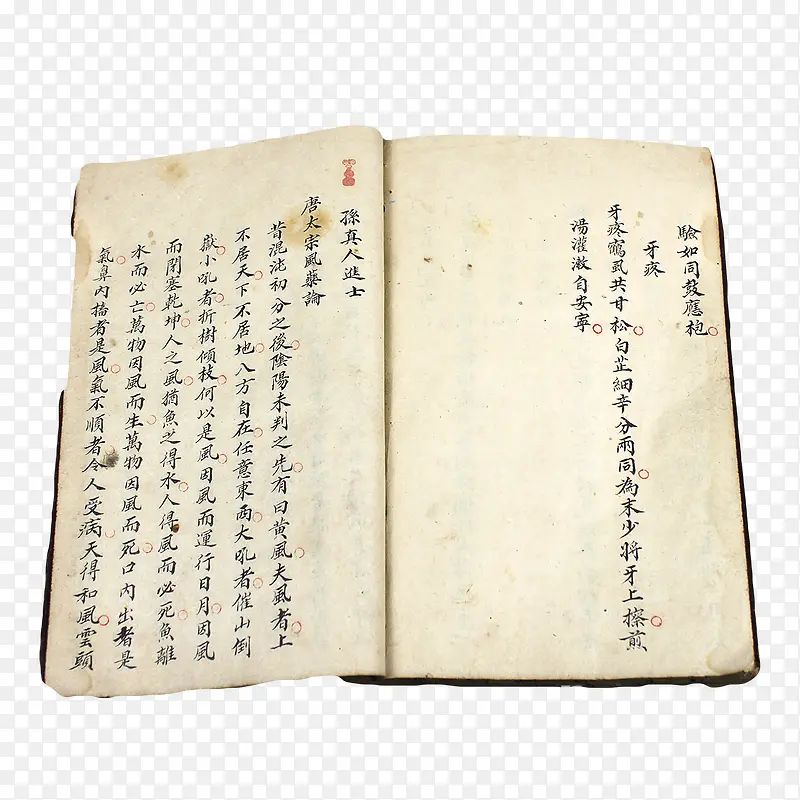 驗如同鼓應枹
牙疼
牙疼窩虱共甘松白芷細辛分兩同為末少將牙上擦煎
湯灌漱自安寧
孫真人進士
唐太宗風藥論
昔混沌初分之後陰陽未判之先有曰黃風夫風者上
不居天下不居地八方自在任意東西大吼者催山倒
嶽小吼者折樹傾枝何以是風因風而運行日月因風
而閉塞乾坤人之風猶魚之得水人得風而必死魚離
水而必亡萬物因風而生萬物因風而死口內出者是
氣鼻內搐者是風氣不順者令人受病天得和風雲頭